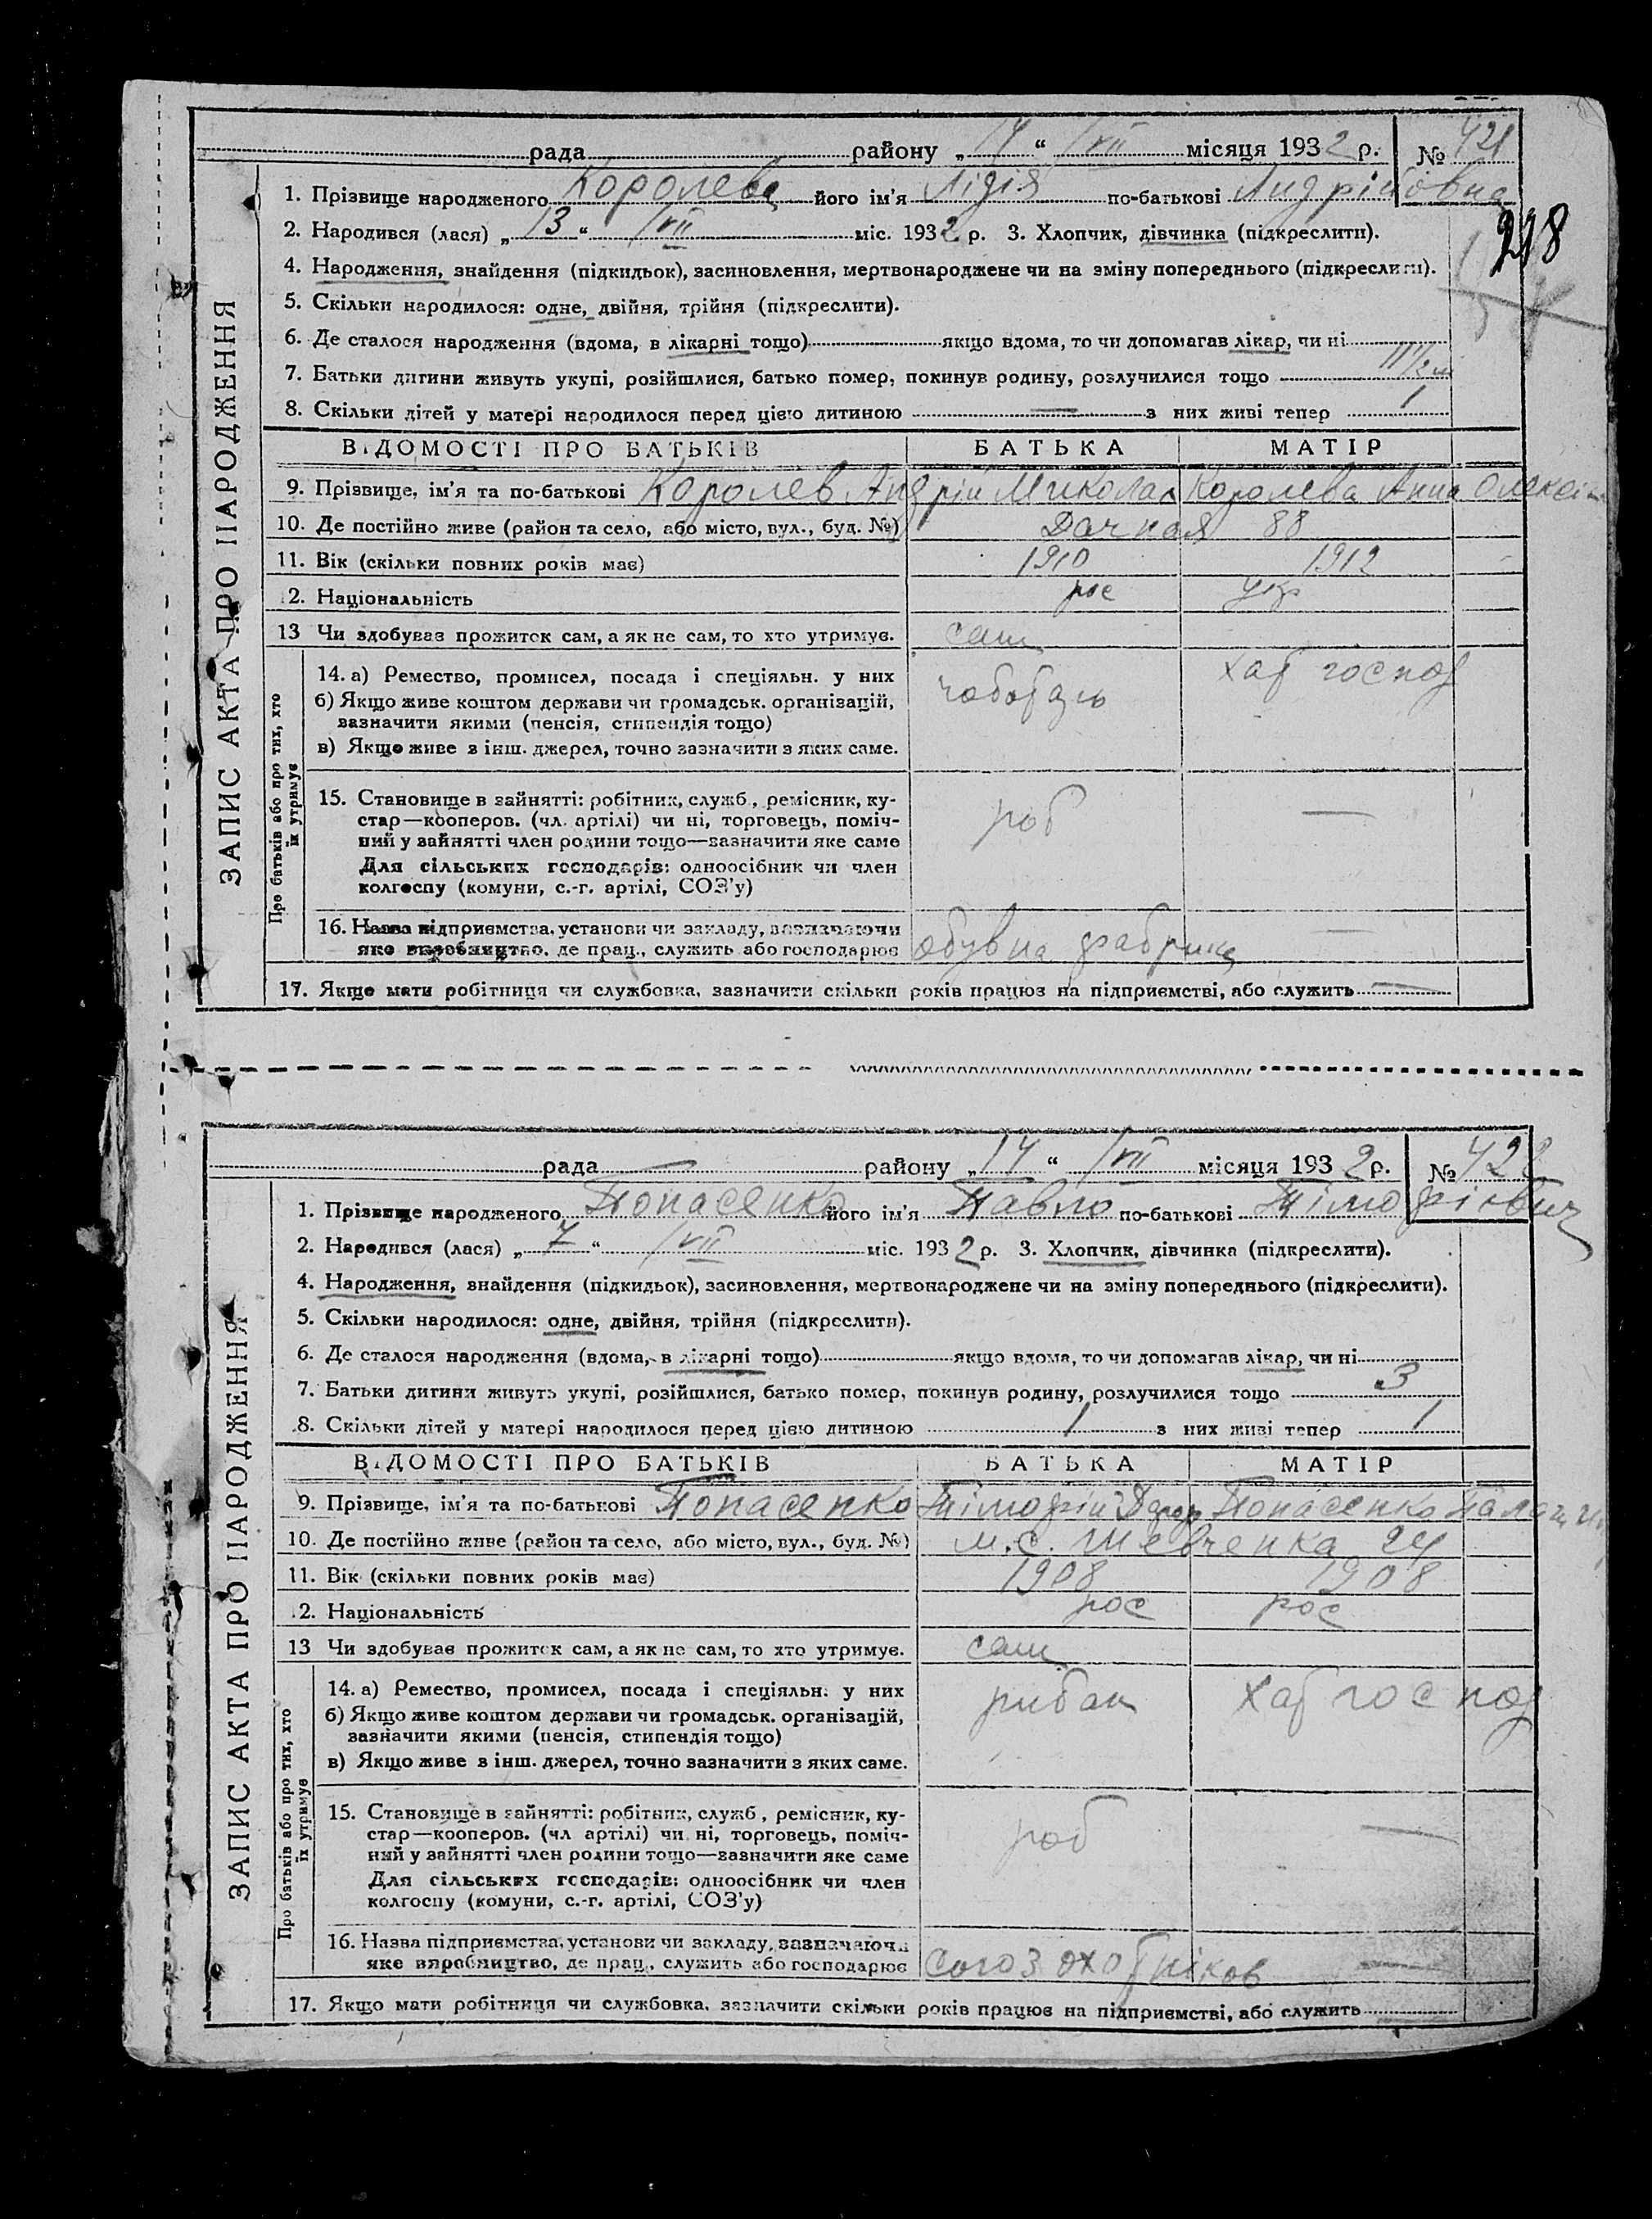 рада району „ 14 “ /VII місяця 1932 р. № 421
1. Прізвище народженого Королева його ім'я Лідія по-батькові Андріївна
218
2. Народився (лася) „ 13 “ /VII міс. 1932 р. 3. Хлопчик, дівчинка (підкреслити).
4. Народження, знайдення (підкидьок), засиновлення, мертвонароджене чи на зміну попереднього (підкреслити).
5. Скільки народилося: одне, двійня, трійня (підкреслити).
6. Де сталося народження (вдома, в лікарні тощо) якщо вдома, то чи допомагав лікар, чи ні
7. Батьки дитини живуть укупі, розійшлися, батько помер, покинув родину, розлучилися тощо 1 1/2
8. Скільки дітей у матері народилося перед цією дитиною — з них живі тепер 1
ЗАПИС АКТА ПРО НАРОДЖЕННЯ
ВІДОМОСТІ ПРО БАТЬКІВ БАТЬКА МАТІР
9. Прізвище, ім'я та по-батькові Королёв Андрій Микола Королева Анна Олексі
10. Де постійно живе (район та село, або місто, вул., буд. №) Дачная 88
11. Вік (скільки повних років має) 1910 1912
12. Національність рос укр
13 Чи здобував прожиток сам, а як не сам, то хто утримує. сам
Про батьків або про тих, хто їх утримує
14. а) Ремество, промисел, посада і спеціяльн. у них чоботарь хат господ
б) Якщо живе коштом держави чи громадськ. організацій,
вазначити якими (пенсія, стипендія тощо)
в) Якщо живе з інш. джерел, точно зазначити з яких саме.
15. Становище в зайнятті: робітник, служб., ремісник, ку-
стар—кооперов. (чл. артілі) чи ні, торговець, поміч-
ний у зайнятті член родини тощо—зазначити яке саме роб —
Для сільських господарів: одноосібник чи член
колгоспу (комуни, с.-г. артілі, СОЗ'у)
16. Назва підприємства, установи чи закладу, зазначаючи
яке виробництво, де прац., служить або господарює обувна фабрика —
17. Якщо мати робітниця чи службовка, зазначити скільки років працює на підприємстві, або служить —
рада — району „ 14 “ /VII місяця 1932 р. № 422
1. Прізвище народженого Попасенко його ім'я Павло по-батькові Тімофіiович
2. Народився (лася) „ 7 “ /VII міс. 1932 р. 3. Хлопчик, дівчинка (підкреслити).
4. Народження, знайдення (підкидьок), засиновлення, мертвонароджене чи на зміну попереднього (підкреслити).
5. Скільки народилося: одне, двійня, трійня (підкреслити).
6. Де сталося народження (вдома, в лікарні тощо) якщо вдома, то чи допомагав лікар, чи ні
7. Батьки дитини живуть укупі, розійшлися, батько помер, покинув родину, розлучилися тощо 3
8. Скільки дітей у матері народилося перед цією дитиною 1 з них живі тепер 1
ЗАПИС АКТА ПРО НАРОДЖЕННЯ
ВІДОМОСТІ ПРО БАТЬКІВ БАТЬКА МАТІР
9. Прізвище, ім'я та по-батькові Попасенко Тімофій Попасенко
10. Де постійно живе (район та село, або місто, вул., буд. №) м.с. Шевченка 24
11. Вік (скільки повних років має) 1908 1908
12. Національність рос рос
13 Чи здобував прожиток сам, а як не сам, то хто утримує. сам
Про батьків або про тих, хто їх утримує
14. а) Ремество, промисел, посада і спеціяльн. у них рибак хат господ
б) Якщо живе коштом держави чи громадськ. організацій,
зазначити якими (пенсія, стипендія тощо)
в) Якщо живе з інш. джерел, точно зазначити з яких саме.
15. Становище в зайнятті: робітник, служб., ремісник, ку-
стар—кооперов. (чл артілі) чи ні, торговець, поміч-
ний у зайнятті член родини тощо—зазначити яке саме роб —
Для сільських господарів: одноосібник чи член
колгоспу (комуни, с.-г. артілі, СОЗ'у)
16. Назва підприємства, установи чи закладу, зазначаючи
яке виробництво, де прац., служить або господарює союз охотніков —
17. Якщо мати робітниця чи службовка, зазначити скільки років працює на підприємстві, або служить